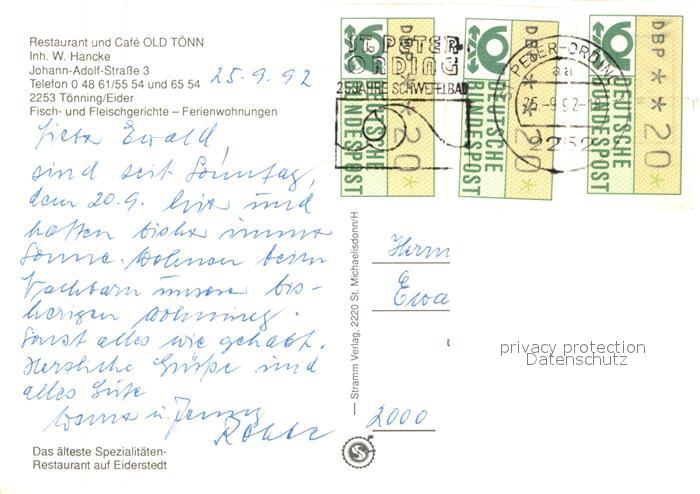 Restaurant und Café OLD TÖNN
Inh. W. Hancke
Johann-Adolf-Straße 3
Telefon 0 48 61/55 54 und 65 54
2253 Tönning/Eider
Fisch- und Fleischgerichte – Ferienwohnungen
25.9.92
Lieber Ewald,
sind seit Sonntag,
dem 20.9. hier und
hatten bisher immer
Sonne. Wohnen beim
Nachbarn unserer bis-
herigen Wohnung.
Sonst alles wie gehabt.
Herzliche Grüße und
alles Gute
u. Jenny
Das älteste Spezialitäten-
Restaurant auf Eiderstedt
ST. PETER-
ORDING
25 JAHRE SCHWEFELBAD
ST. PETER-ORDING
aa
25-9.92-18
2252
DEUTSCHE
BUNDESPOST
DBP
**20*
DEUTSCHE
BUNDESPOST
DBP
**20*
DEUTSCHE
BUNDESPOST
DBP
**20*
— Stramm Verlag, 2220 St. Michaelisdonn/H
Herrn
Ewa
2000
privacy protection
Datenschutz